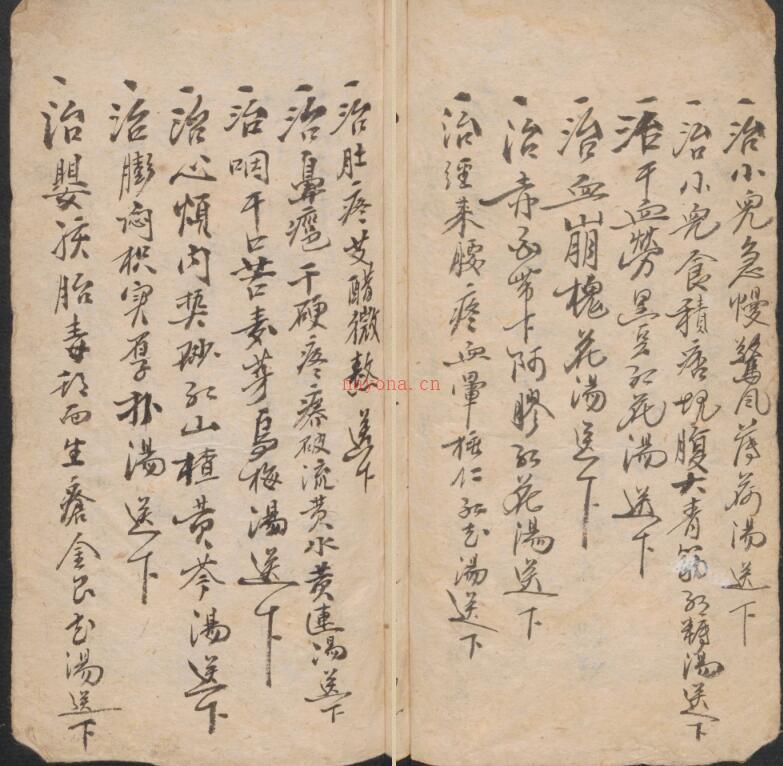 一治小兒急慢驚風薄荷湯送下
一治小兒食積痞塊腹大青筋红糖湯送下
一治干血勞黑豆红花湯送下
一治血山崩槐花湯送下
一治赤白带下阿膠红花湯送下
一治經来腰疼血暈桃仁红花湯送下
一治肚疼艾醋微熬送下
一治鼻疤干硬疼痛破流黄水黄連湯送下
一治咽干口苦麦芽烏梅湯送下
一治心煩内熱砂红山楂黄芩湯送下
一治膨悶枳实厚朴湯送下
一治嬰孩胎毒頭面生瘡金艮花湯送下
nayona.cn